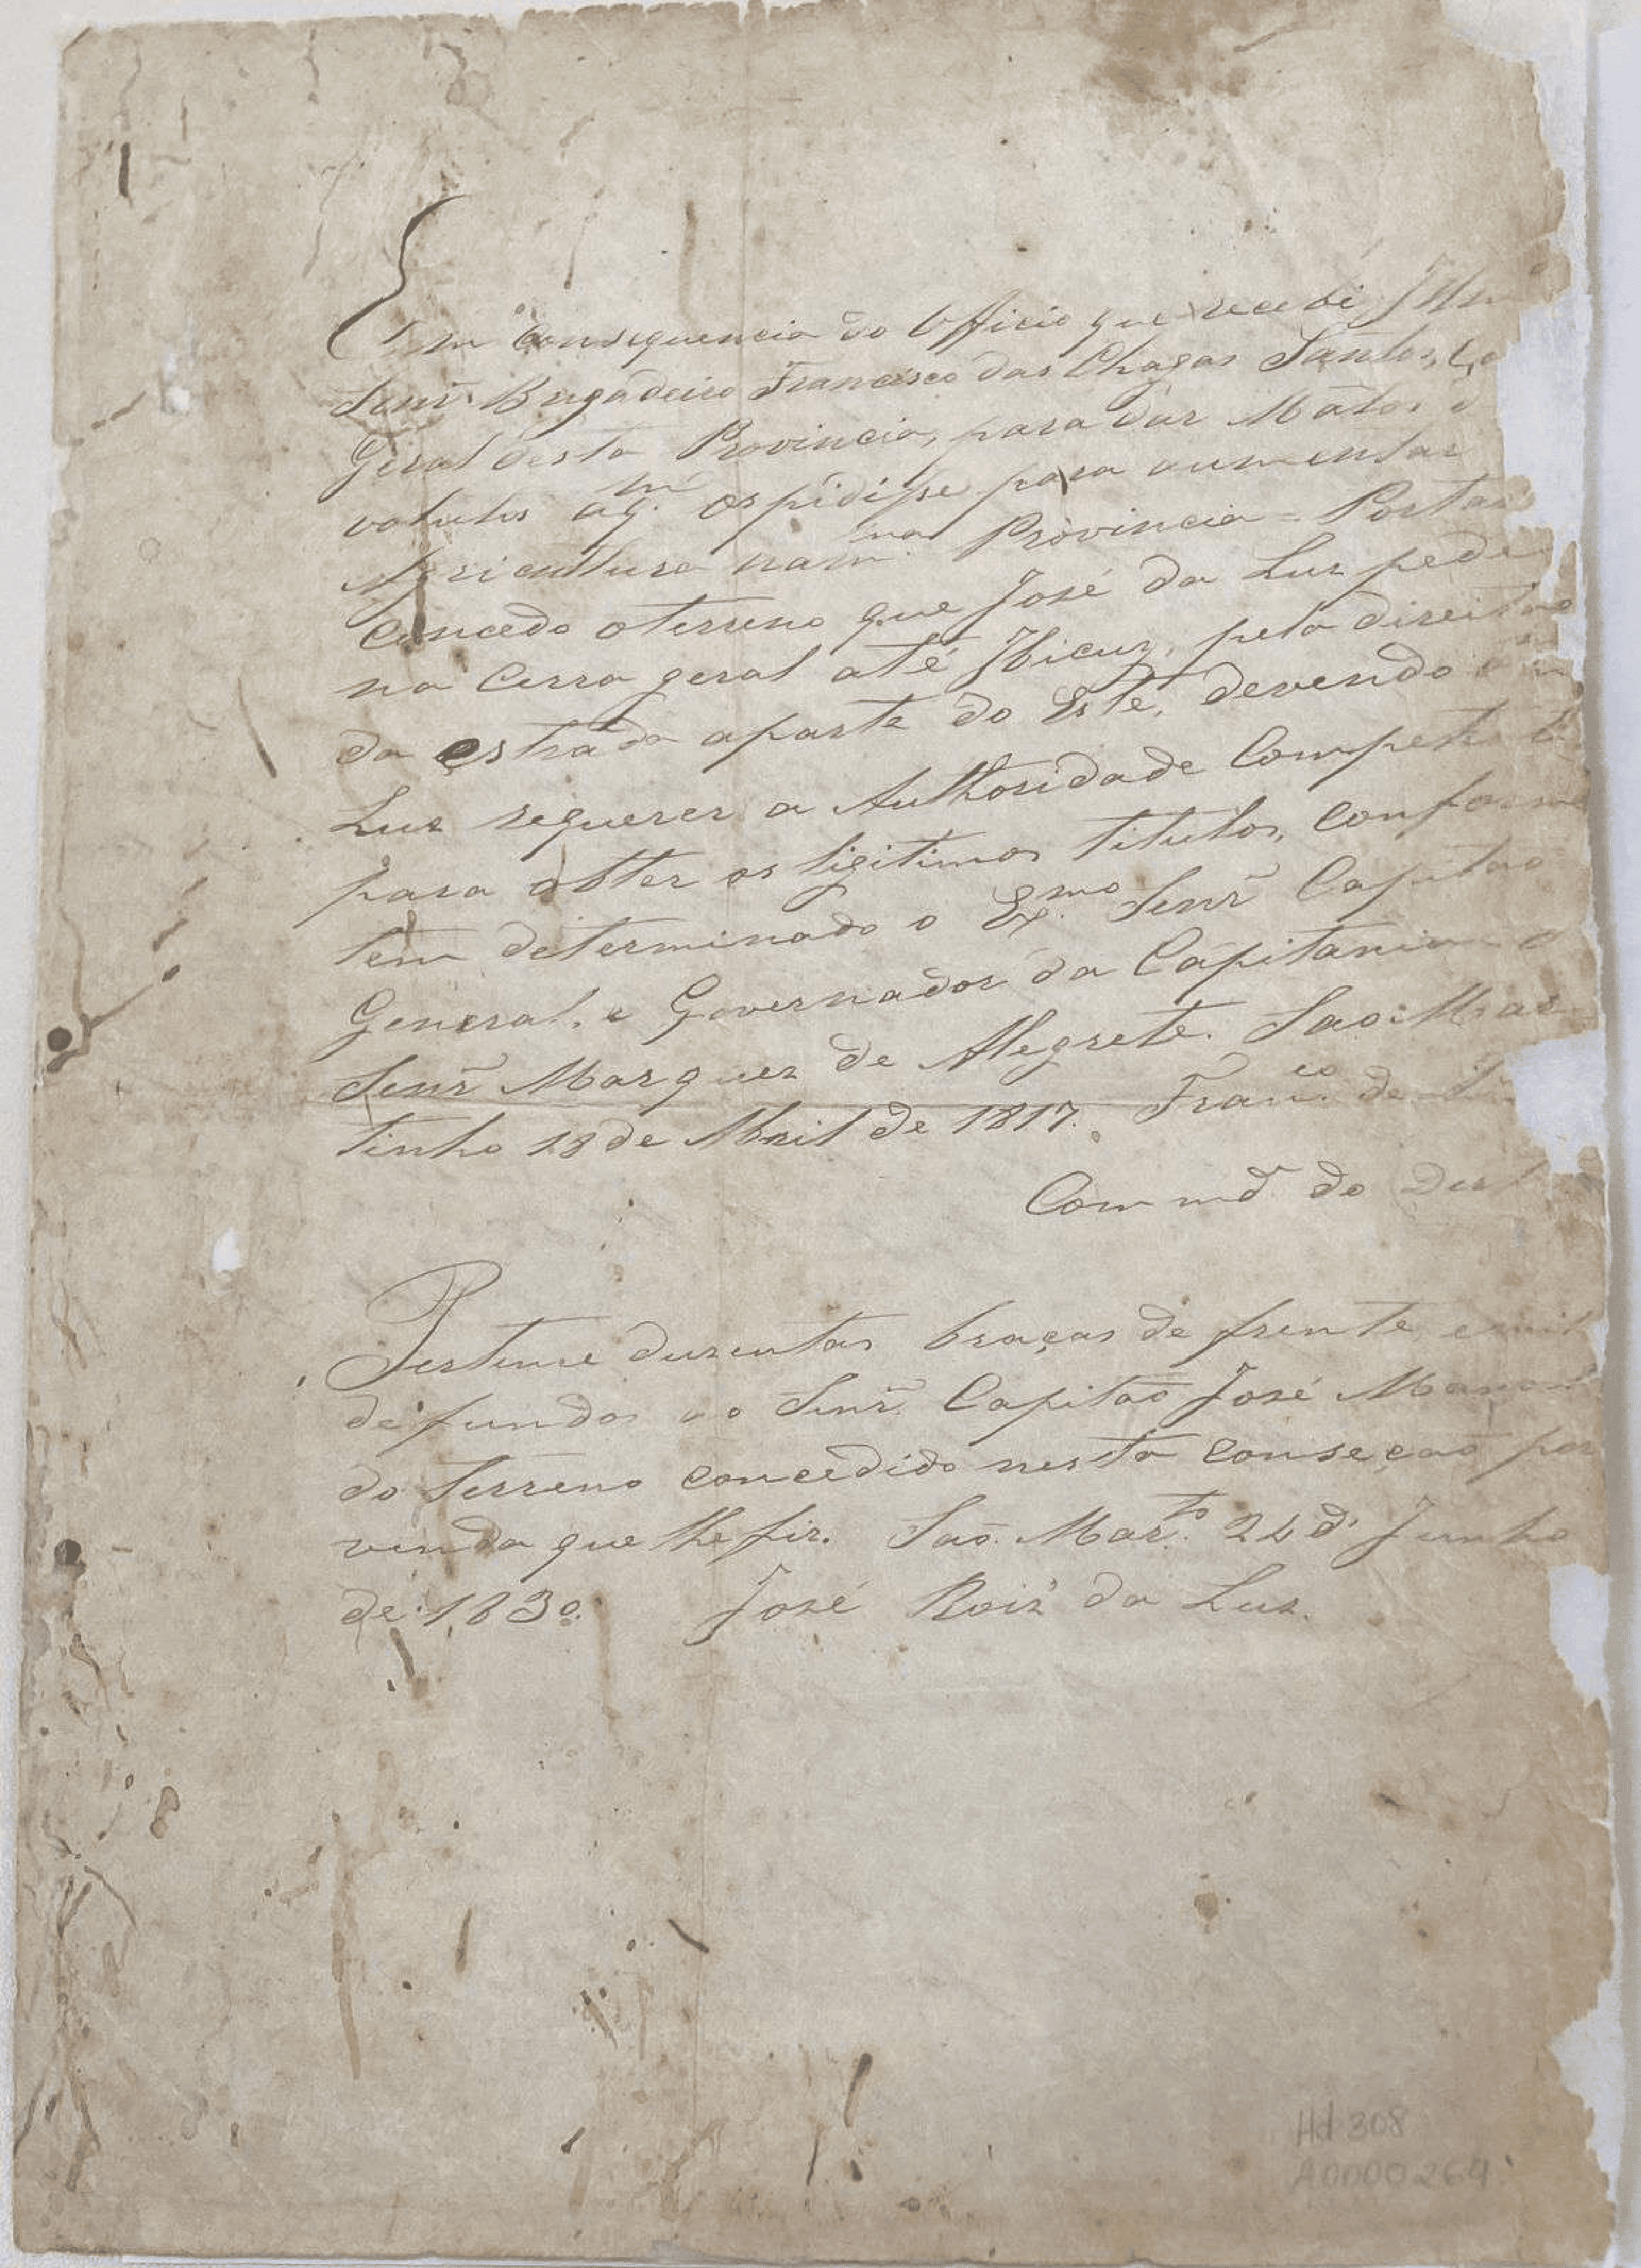 Em consequencia do Officio que recebi Illm
Senr̃ Brigadeiro Francisco das Chagas Santos,
Geral desta Provincia, para dar Matos d
volutos aq.m os pidisse para aumentar
Agricultura nam.ma Provincia = Portas
concedo oterreno que José da Luz pede
na Cerra geral até Ibicuy, pela direita
da estrada aparte do Este, devendo
Luz requerer a Authoridade Compete
para obter os ligitimos titulos, conforme
tem determinado o Ex.mo Senr̃ Capitão
General, e Governador da Capitania
Senr̃ Marquez de Alegrete. Sao Mar
tinho 18 de Abril de 1817. Fran.co de
Commd.e do Dest
Pertense duzentas braças de frente, e mil
de fundos ao Senr̃ Capitão José Mano
do terreno concedido nesta conseção por
venda que lhe fiz. São Mar.to 24 d' Junho
de 1830. José Roiz da Luz.
Hd 308
A0000264